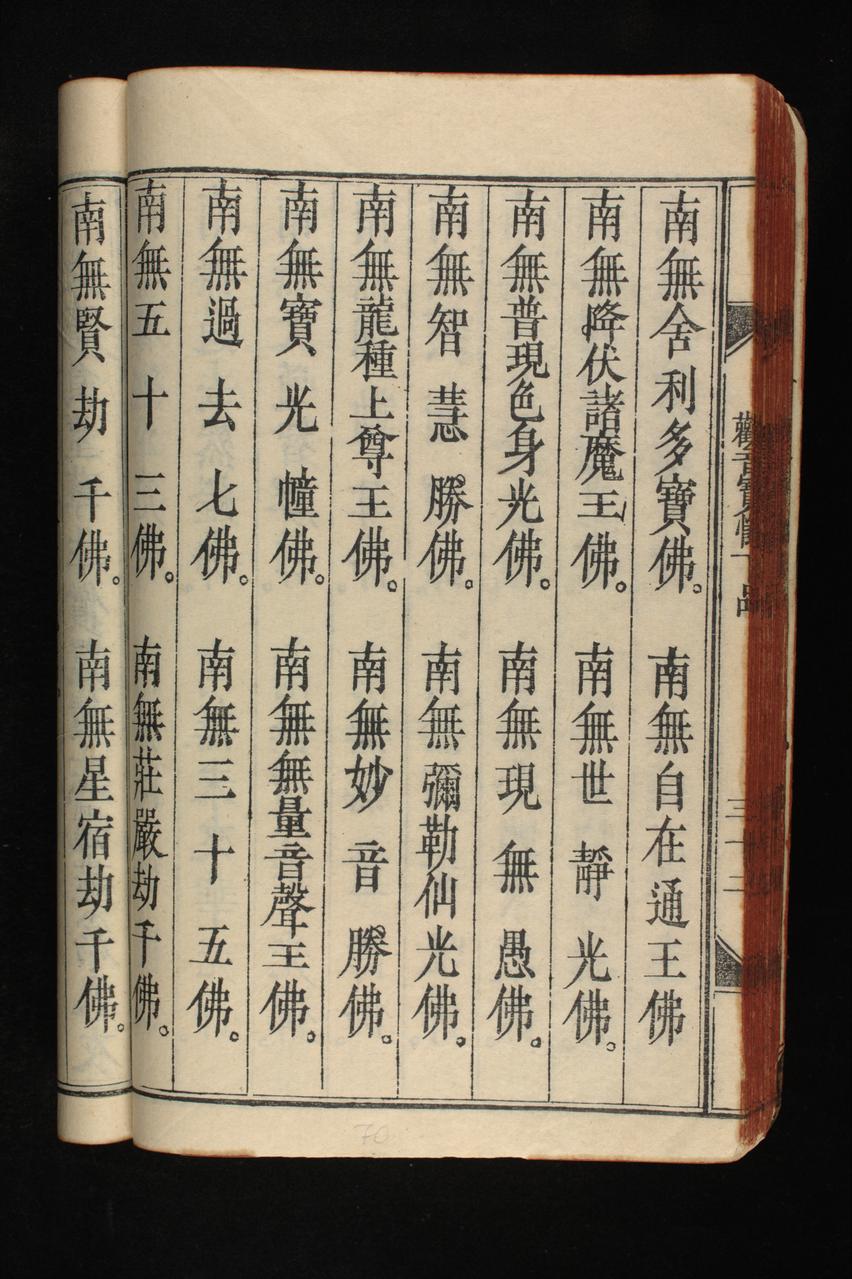 南無舍利多寶佛。 南無自在通王佛
南無降伏諸魔王佛。 南無世靜光佛。
南無普現色身光佛。 南無現無愚佛。
南無智慧勝佛。 南無彌勒仙光佛。
南無龍種上尊王佛。 南無妙音勝佛。
南無寶光幢佛。 南無無量音聲王佛。
南無過去七佛。 南無三十五佛。
南無五十三佛。 南無莊嚴劫千佛。
南無賢劫千佛。 南無星宿劫千佛。
觀音寶懺
三十二
70